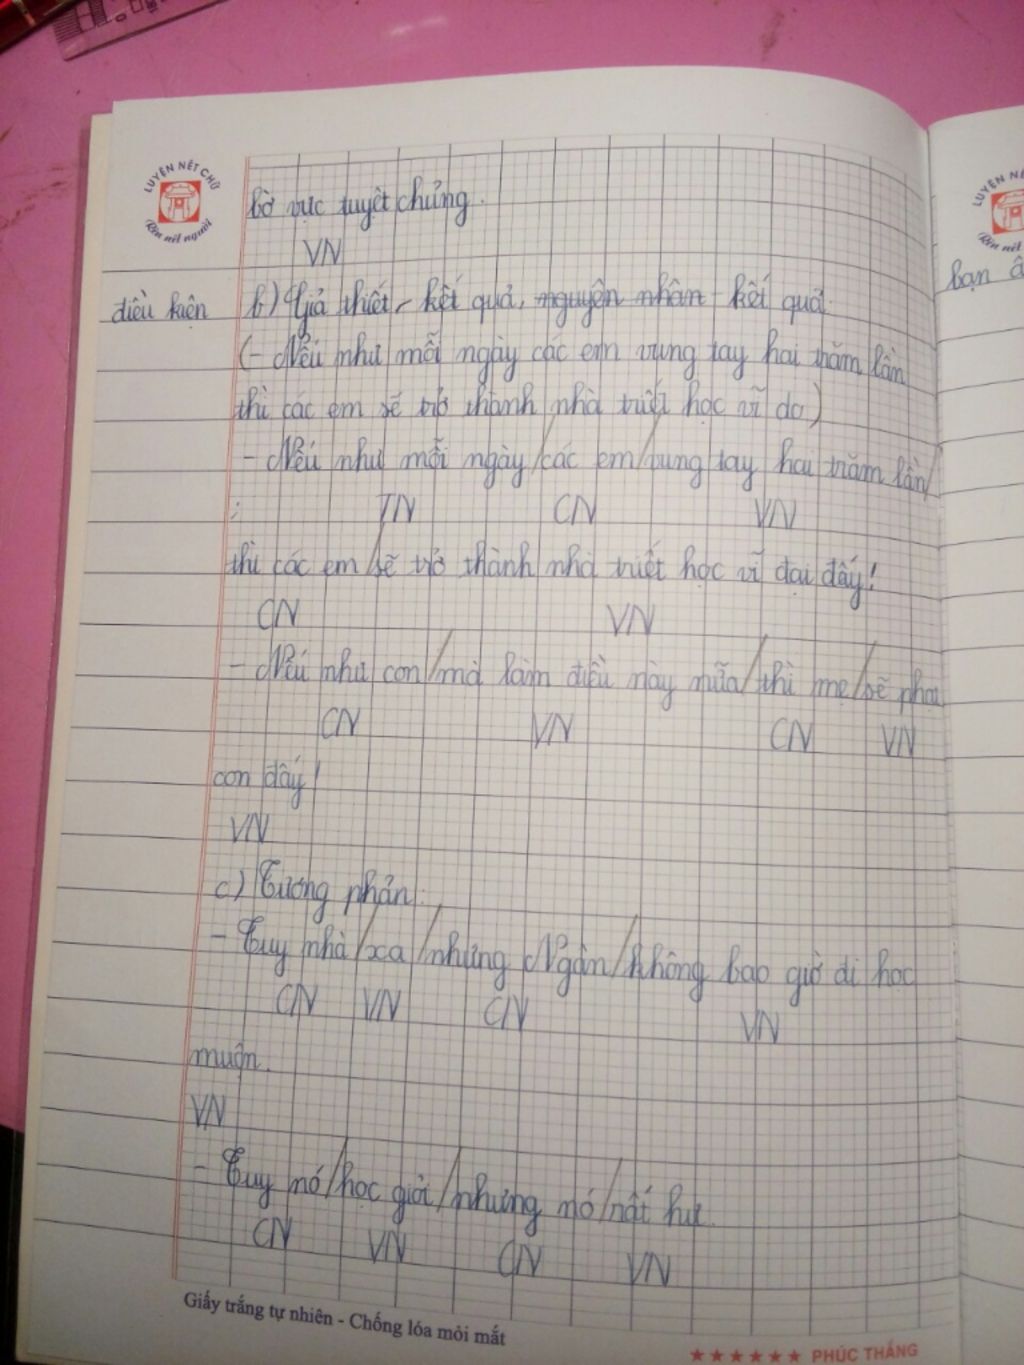 LUYỆN NÉT CHỮ
Rèn nết người
bờ vực tuyệt chủng.
VN
điều kiện b) Giả thiết - kết quả, nguyên nhân - kết quả
(- Nếu như mỗi ngày các em vung tay hai trăm lần
thì các em sẽ trở thành nhà triết học vĩ do)
- Nếu như mỗi ngày/các em/vung tay hai trăm lần/
TN CN VN
thì các em/sẽ trở thành nhà triết học vĩ đại đấy!
CN VN
- Nếu như con/mà làm điều này nữa/thì mẹ/sẽ phạt
CN VN CN VN
con đấy!
VN
c) Tương phản:
- Tuy nhà/xa/nhưng Ngân/không bao giờ đi học
CN VN CN VN
muộn.
VN
- Tuy nó/học giỏi/nhưng nó/rất hư.
CN VN CN VN
Giấy trắng tự nhiên - Chống lóa mỏi mắt
★★★★★★ PHÚC THẮNG
LUYỆN NÉ
Rèn nết
bạn